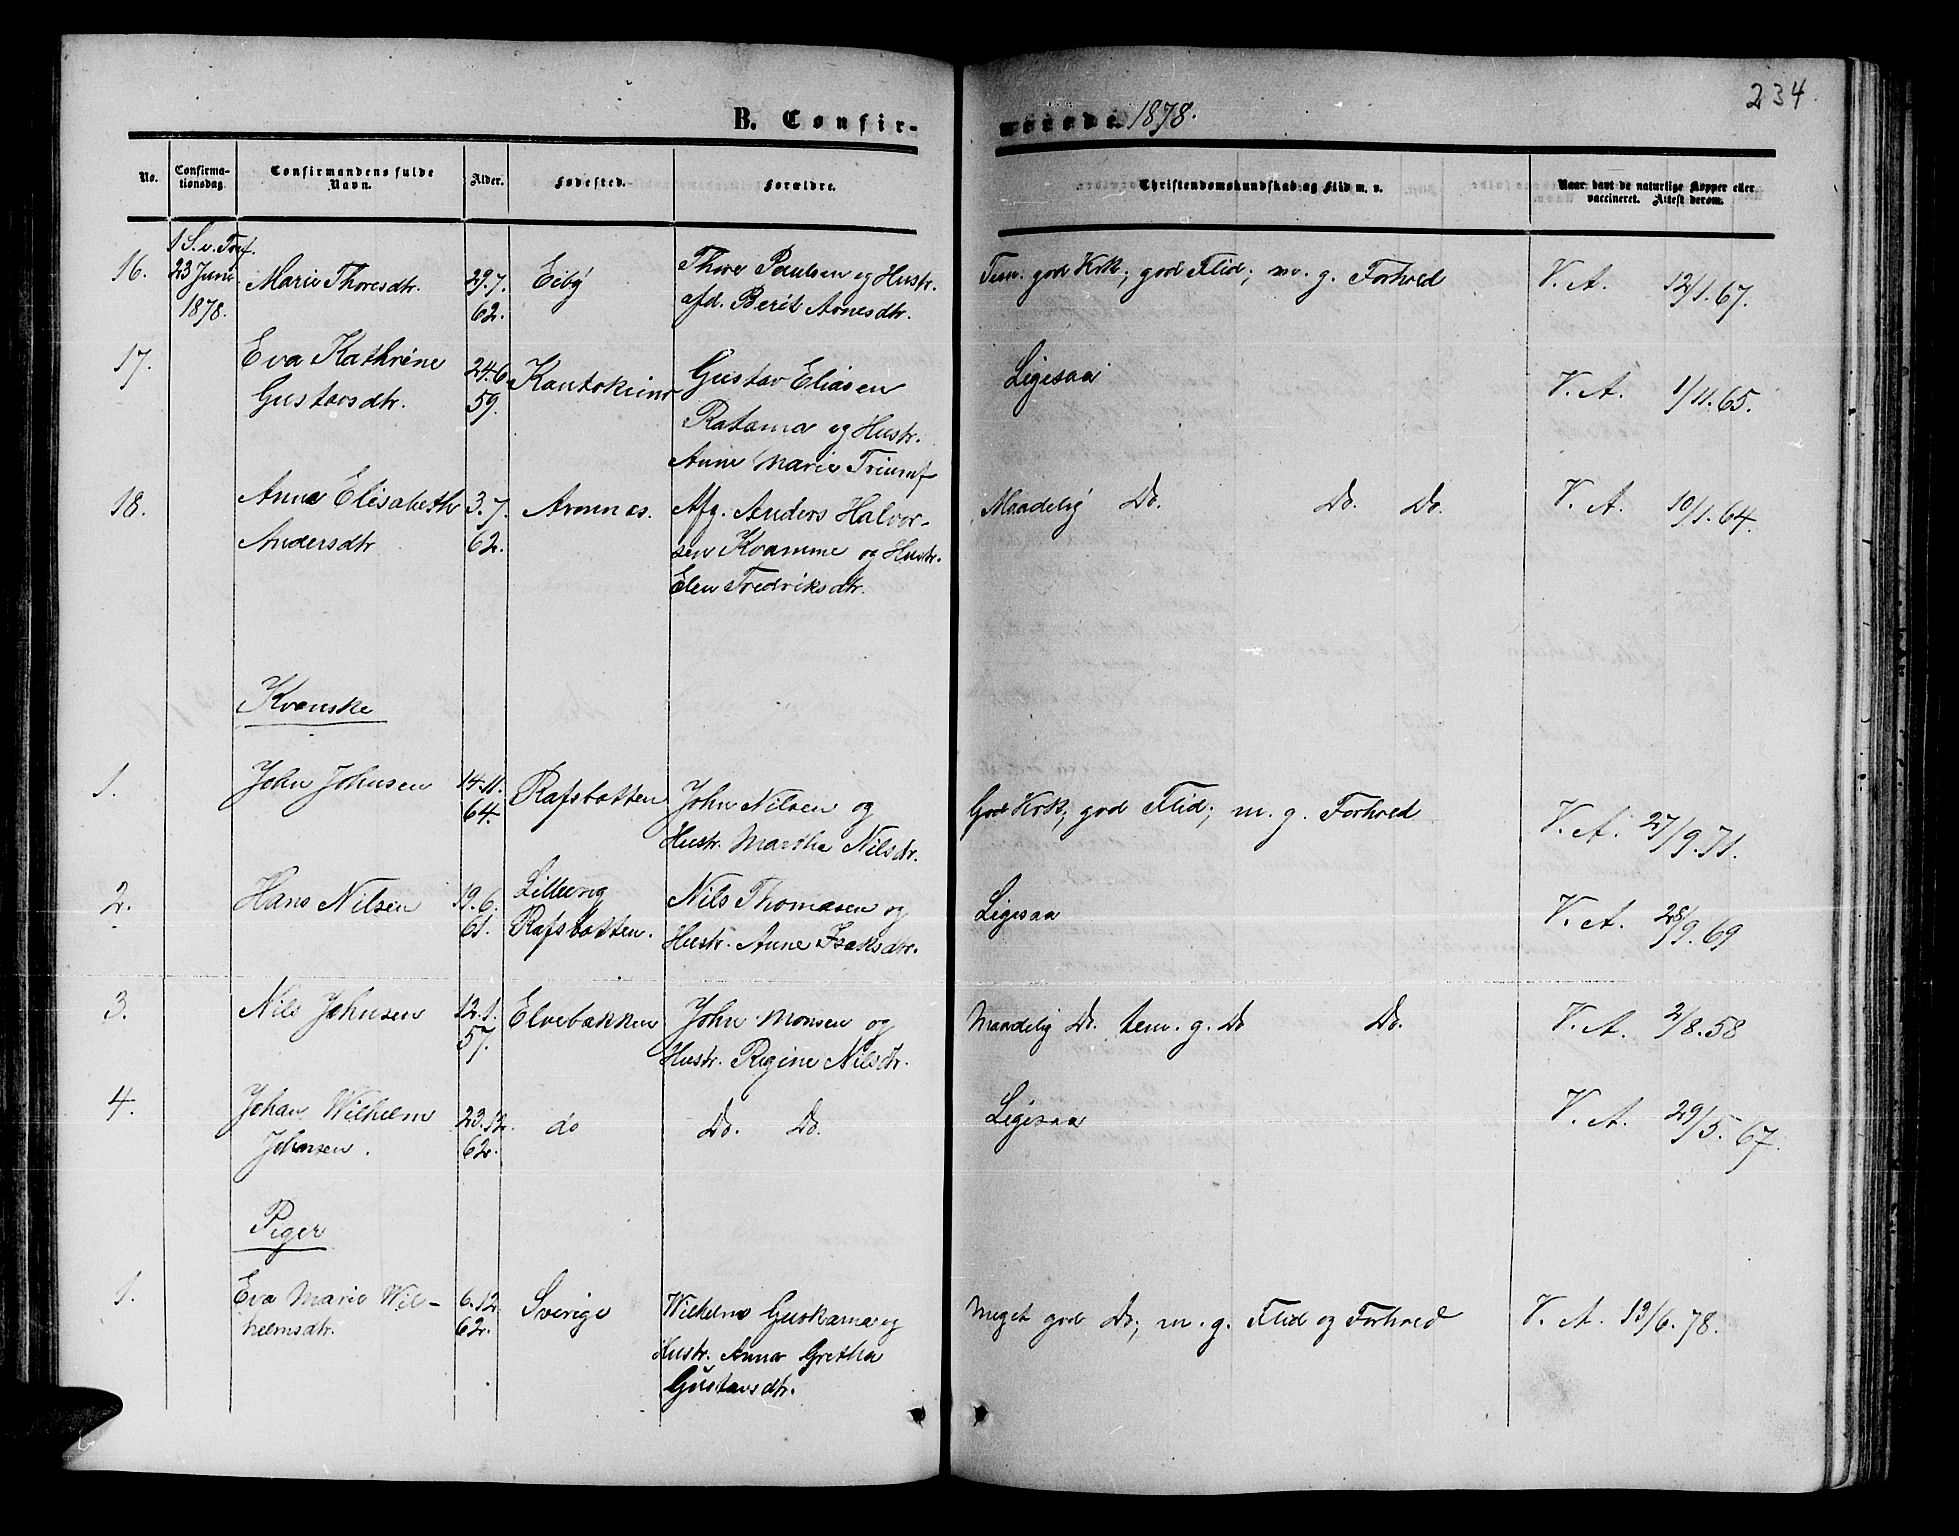 234.
B. Confir-
merede. 1878.
No.
Confirma-
tionsdag.
Confirmandens fulde
Navn.
Alder.
Fødested.
Forældre.
Christendomskundskab og Flid m. v.
Naar havt de naturlige Kopper eller
vaccineret. Attest derom.
16.
1 S. e. Tref.
23 Juni
1878.
Marie Thoresdtr.
29.7.
62.
Eiby
Thore Paulsen og Hustr.
afd. Berit Arnesdtr.
Tem. god Krk; god Flid; m. g. Forhold
V. A. 12/1. 67.
17.
Eva Kathrine
Gustavsdtr.
24.6.
59.
Kautokeino
Gustav Eliasen
Ratama og Hustr.
Anne Marie Triumf
Ligesaa
V. A. 1/11. 65.
18.
Anna Elisabeth
Andersdtr
3.7.
62.
Aronnes.
Afg. Anders Halvor-
sen Kvamme og Hustr.
Elen Fredriksdtr.
Maadelig Do. Do. Do.
V. A. 10/1. 64.
Kvenske
1.
John Johnsen
14.11.
64.
Rafsbotten
John Nilsen og
Hustr. Martha Nilsdtr.
God Krk; god Flid; m. g. Forhold
V. A. 27/9. 71.
2.
Hans Nilsen
19.6.
61.
Rafsbotten.
Nils Thomasen og
Hustr. Anne Isaksdtr.
Ligesaa
V. A. 28/9. 69
3.
Nils Johnsen
12.1.
57.
Elvebakken
John Monsen og
Hustr. Regine Nilsdtr.
Maadelig Do. tem. g. Do Do.
V. A. 2/8. 58
4.
Johan Wilhelm
Johnsen.
23.12.
62.
do
Do. Do.
Ligesaa
V. A. 29/5. 67.
Piger
1.
Eva Marie Wil-
helmsdtr.
6.12.
62.
Sverige
Wilhelm Guskama og
Hustr. Anna Gretha
Gustavsdtr.
Meget god Do; m. g. Flid og Forhold
V. A. 13/6. 78.